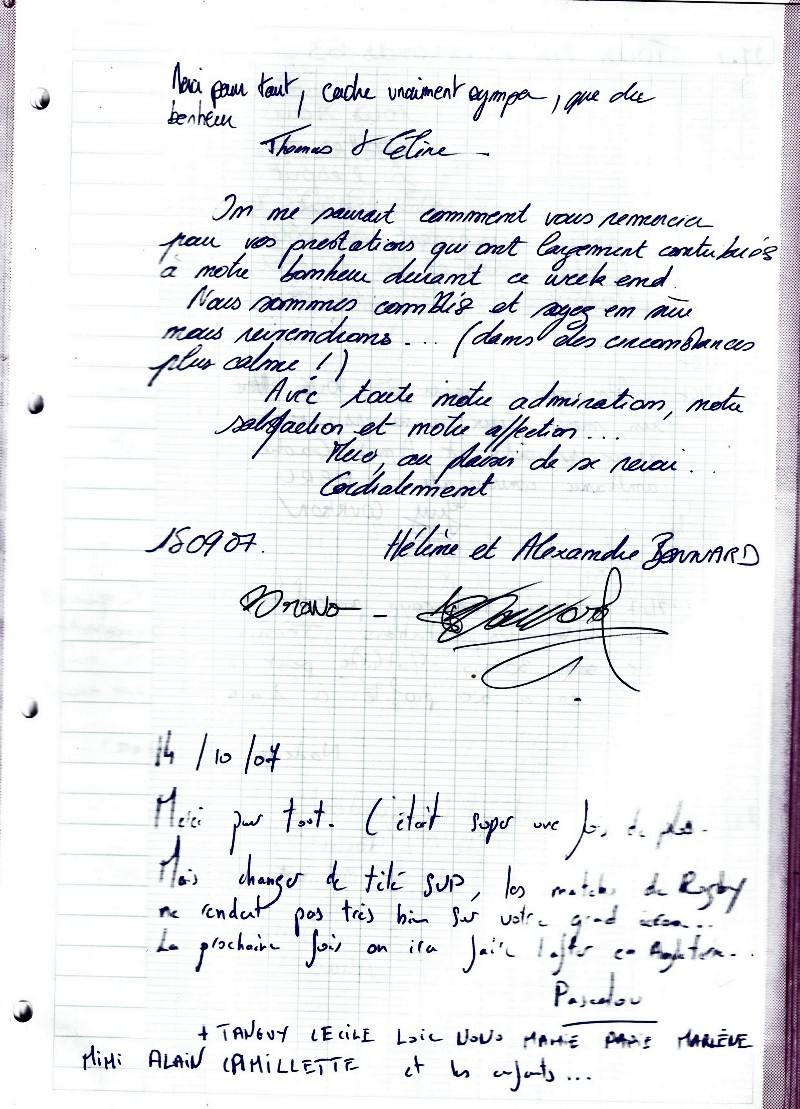 Merci pour tout, cadre vraiment sympa, que du
bonheur
Thomas & Céline
On ne saurait comment vous remercier
pour vos prestations qui ont largement contribués
à notre bonheur durant ce week end.
Nous sommes comblés et soyez en sûr
nous reviendrons... (dans des circonstances
plus calme !)
Avec toute notre admiration, notre
satisfaction et notre affection...
Merci, au plaisir de se revoir..
Cordialement
150907.
Hélène et Alexandre BONNARD
14/10/07
Merci pour tout. C'était super une fois de plus.
Mais changer de télé SVP, les matchs de Rugby
ne rendent pas très bien sur votre grand écran...
La prochaine fois on ira faire l'after en Angleterre..
Pascalou
+ TANGUY CECILE LOIC NONO MAMIE PAPIE MARLÈNE
MIMI ALAIN CAMILLETTE et les enfants...